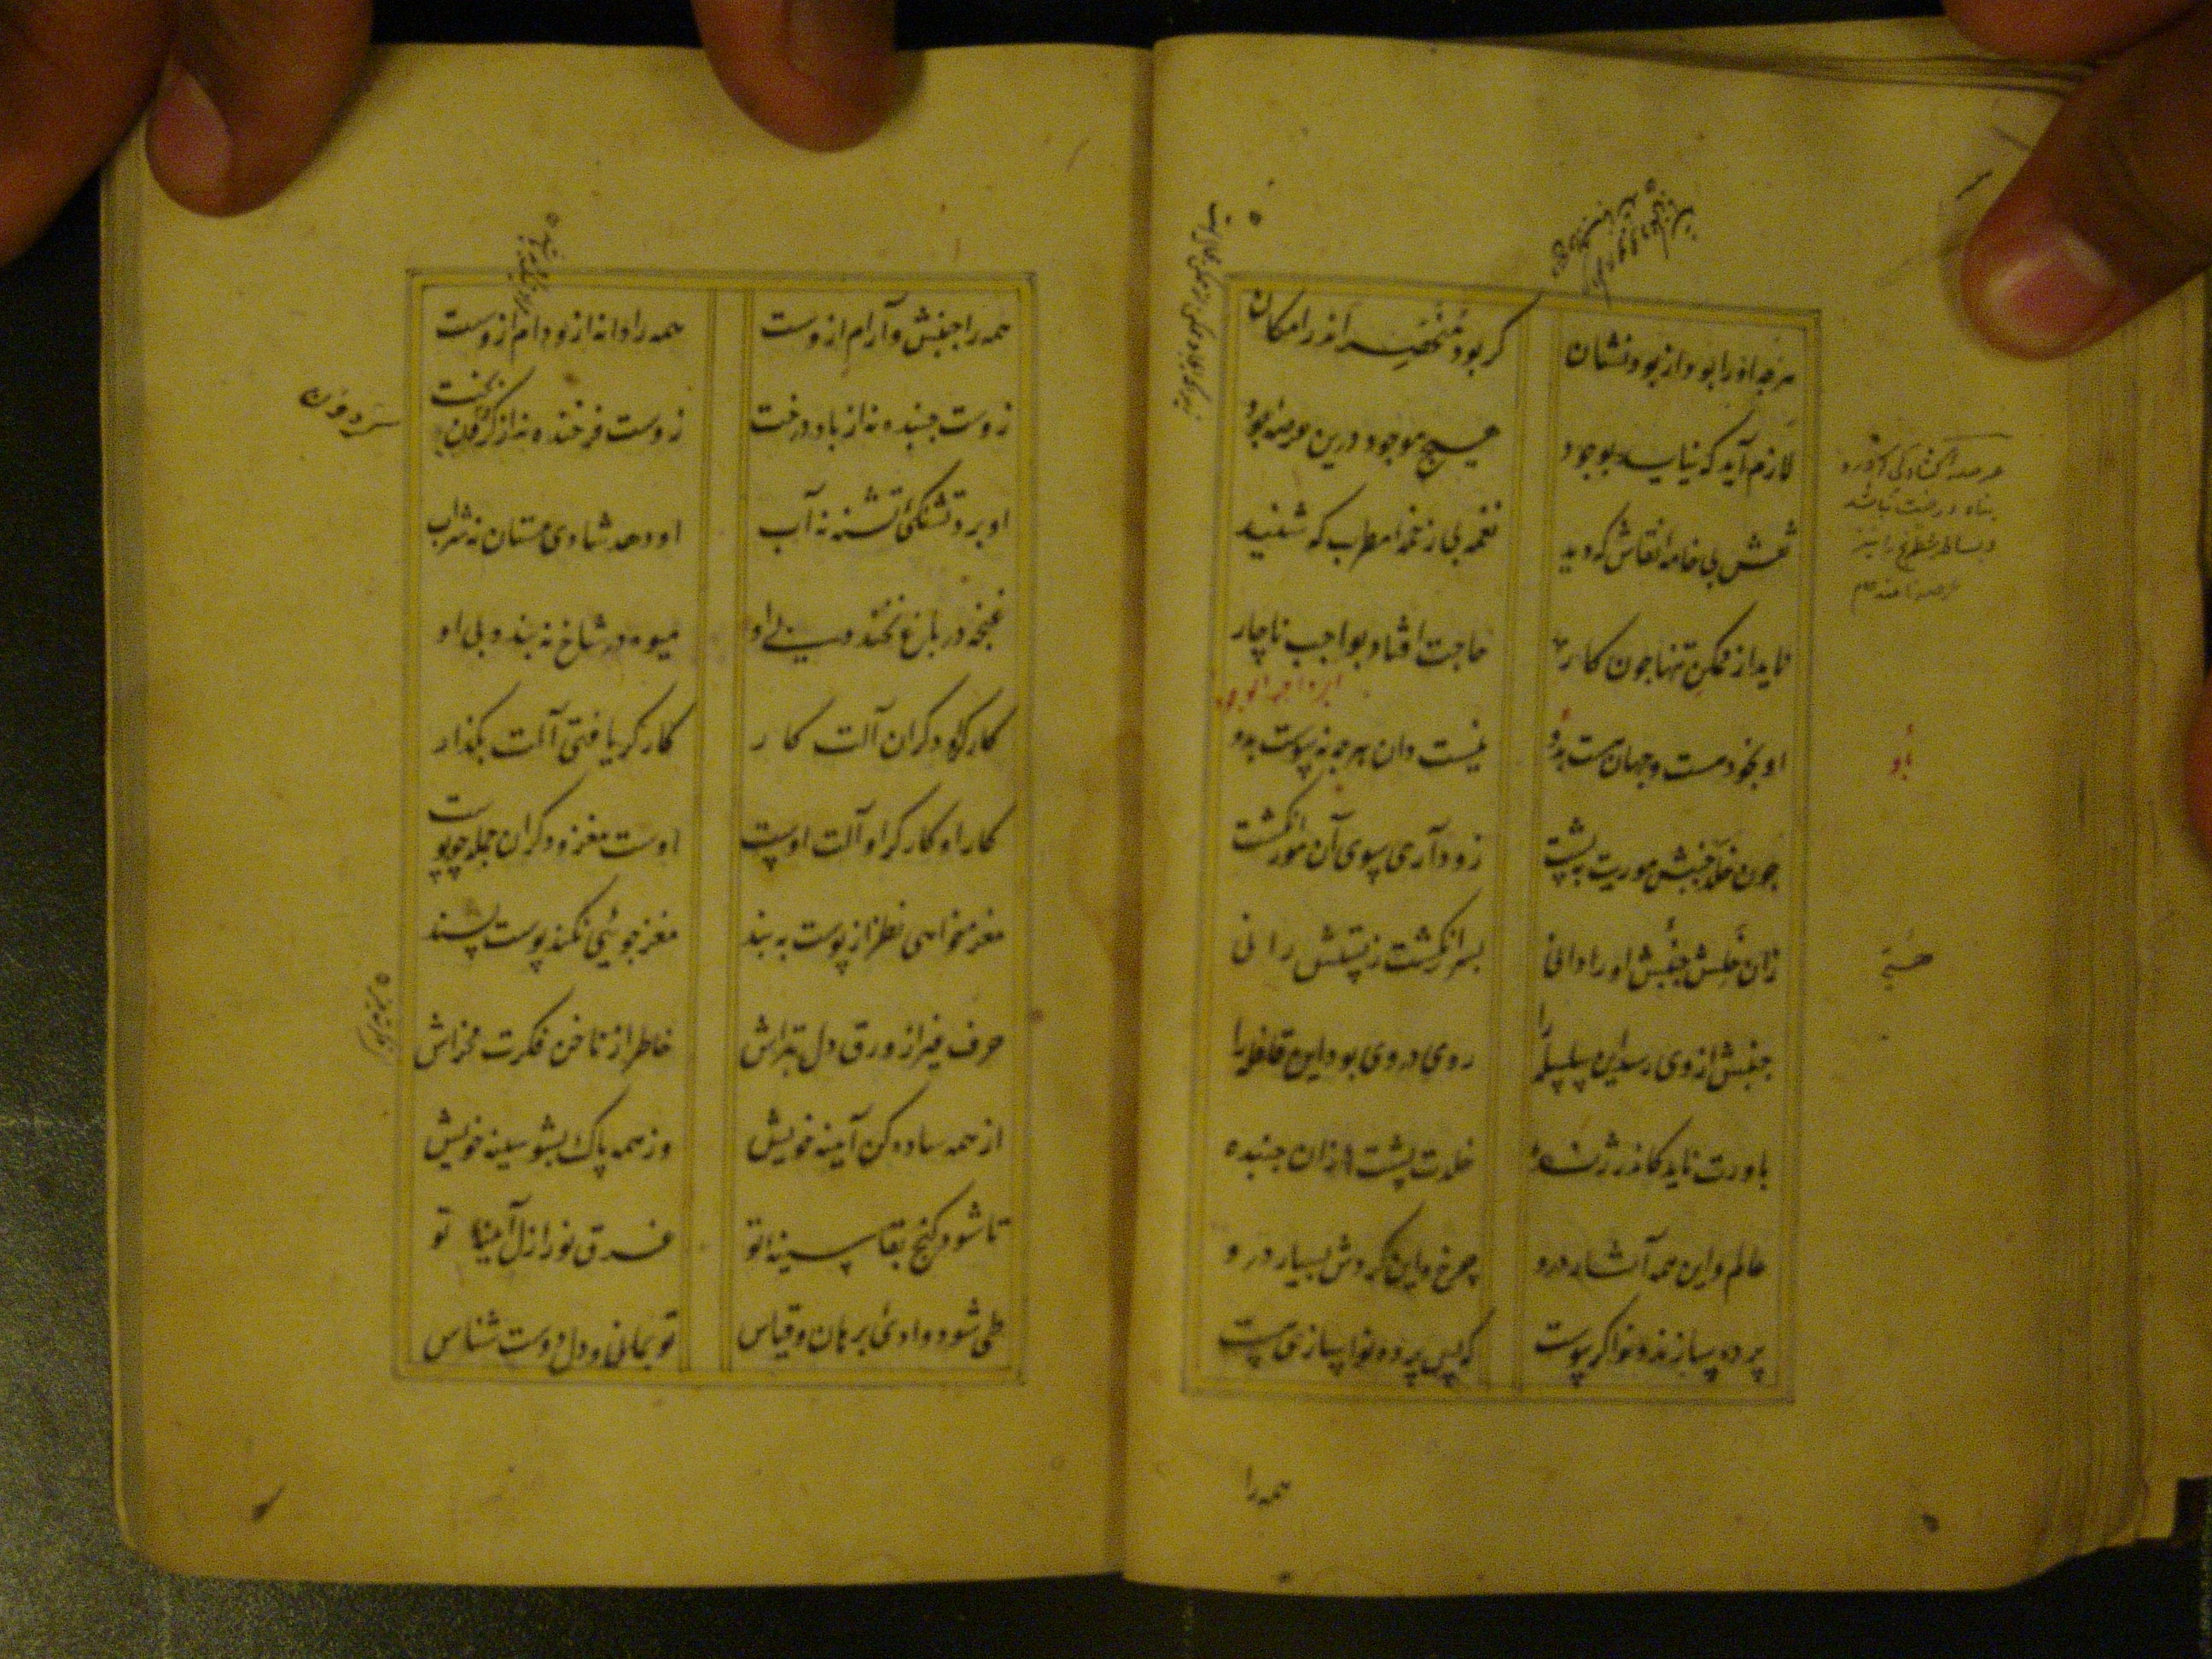 هرچه او را بود از بود نشان
کر بود منحصر اندر امکان
لازم آید که نیاید بوجود
هیچ موجود درین عرصهٔ بود
نقش بی خامهٔ نقاش که دید
نغمه بی زخمهٔ مطرب که شنید
ناید از ممکن تنها چون کار
حاجت افتاد بواجب ناچار
او بخود هست و جهان هست بدو
نیست دان هرچه نه پیوست بدو
چون خلد جنبش موریت به پشت
زود آری بسوی آن مور انکشت
زان خلش جنبش او را دانی
بسر انکشت ز پشتش رانی
جنبش از وی رسد این سلسله را
روی در وی بود این قافله را
باورت ناید کاندر ژنده
خلدت پشت از آن جنبده
عالم و این همه آثار درو
چرخ و این کردش بسیار درو
پرده سازند و نوا کر پوست
که پس پرده نوا سازی هست
همه را
همه را جنبش و آرام ازوست
همه را دانه ازو دام ازوست
زوست جنبده نه از باد درخت
زوست فرخنده نه از کردون بخت
او برد تشنکی تشنه نه آب
او دهد شادی مستان نه شراب
غنچه در باغ نخندد بی او
میوه در شاخ نه بندد بی او
کارکر او دکران آلت کار
کارکر یافتی آلت بکذار
کار او کارکر او آلت اوست
اوست مغز و دکران جمله چو پوست
مغز میخواهی نظر از پوست به بند
مغز جویی نکند پوست پسند
حرف غیر از ورق دل بتراش
خاطر از ناخن فکرت مخراش
از همه ساده کن آیینه خویش
وز همه پاک بشو سینه خویش
تا شود کنج بقا سینهٔ تو
غرق نور ازل آیینهٔ تو
طی شود وادی برهان و قیاس
تو بمانی و دل دوست شناس